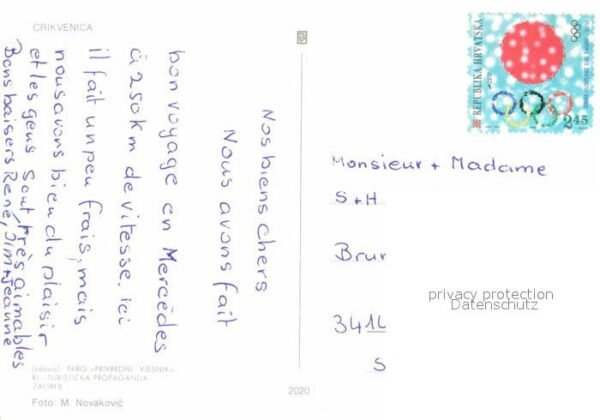 CRIKVENICA
Nos biens chers
Nous avons fait
bon voyage en Mercèdes
à 250km de vitesse. ici
il fait un peu frais, mais
nous avons bien du plaisir
et les gens sont très aimables
Bons baisers René, Jim + Jeanne
Izdavač: NIRO »PRIVREDNI VJESNIK«
RJ »TURISTIČKA PROPAGANDA
ZAGREB
Foto: M. Novaković
2020
REPUBLIKA HRVATSKA
2.45
Monsieur + Madame
S + H
Brur
privacy protection
Datenschutz
3414
S